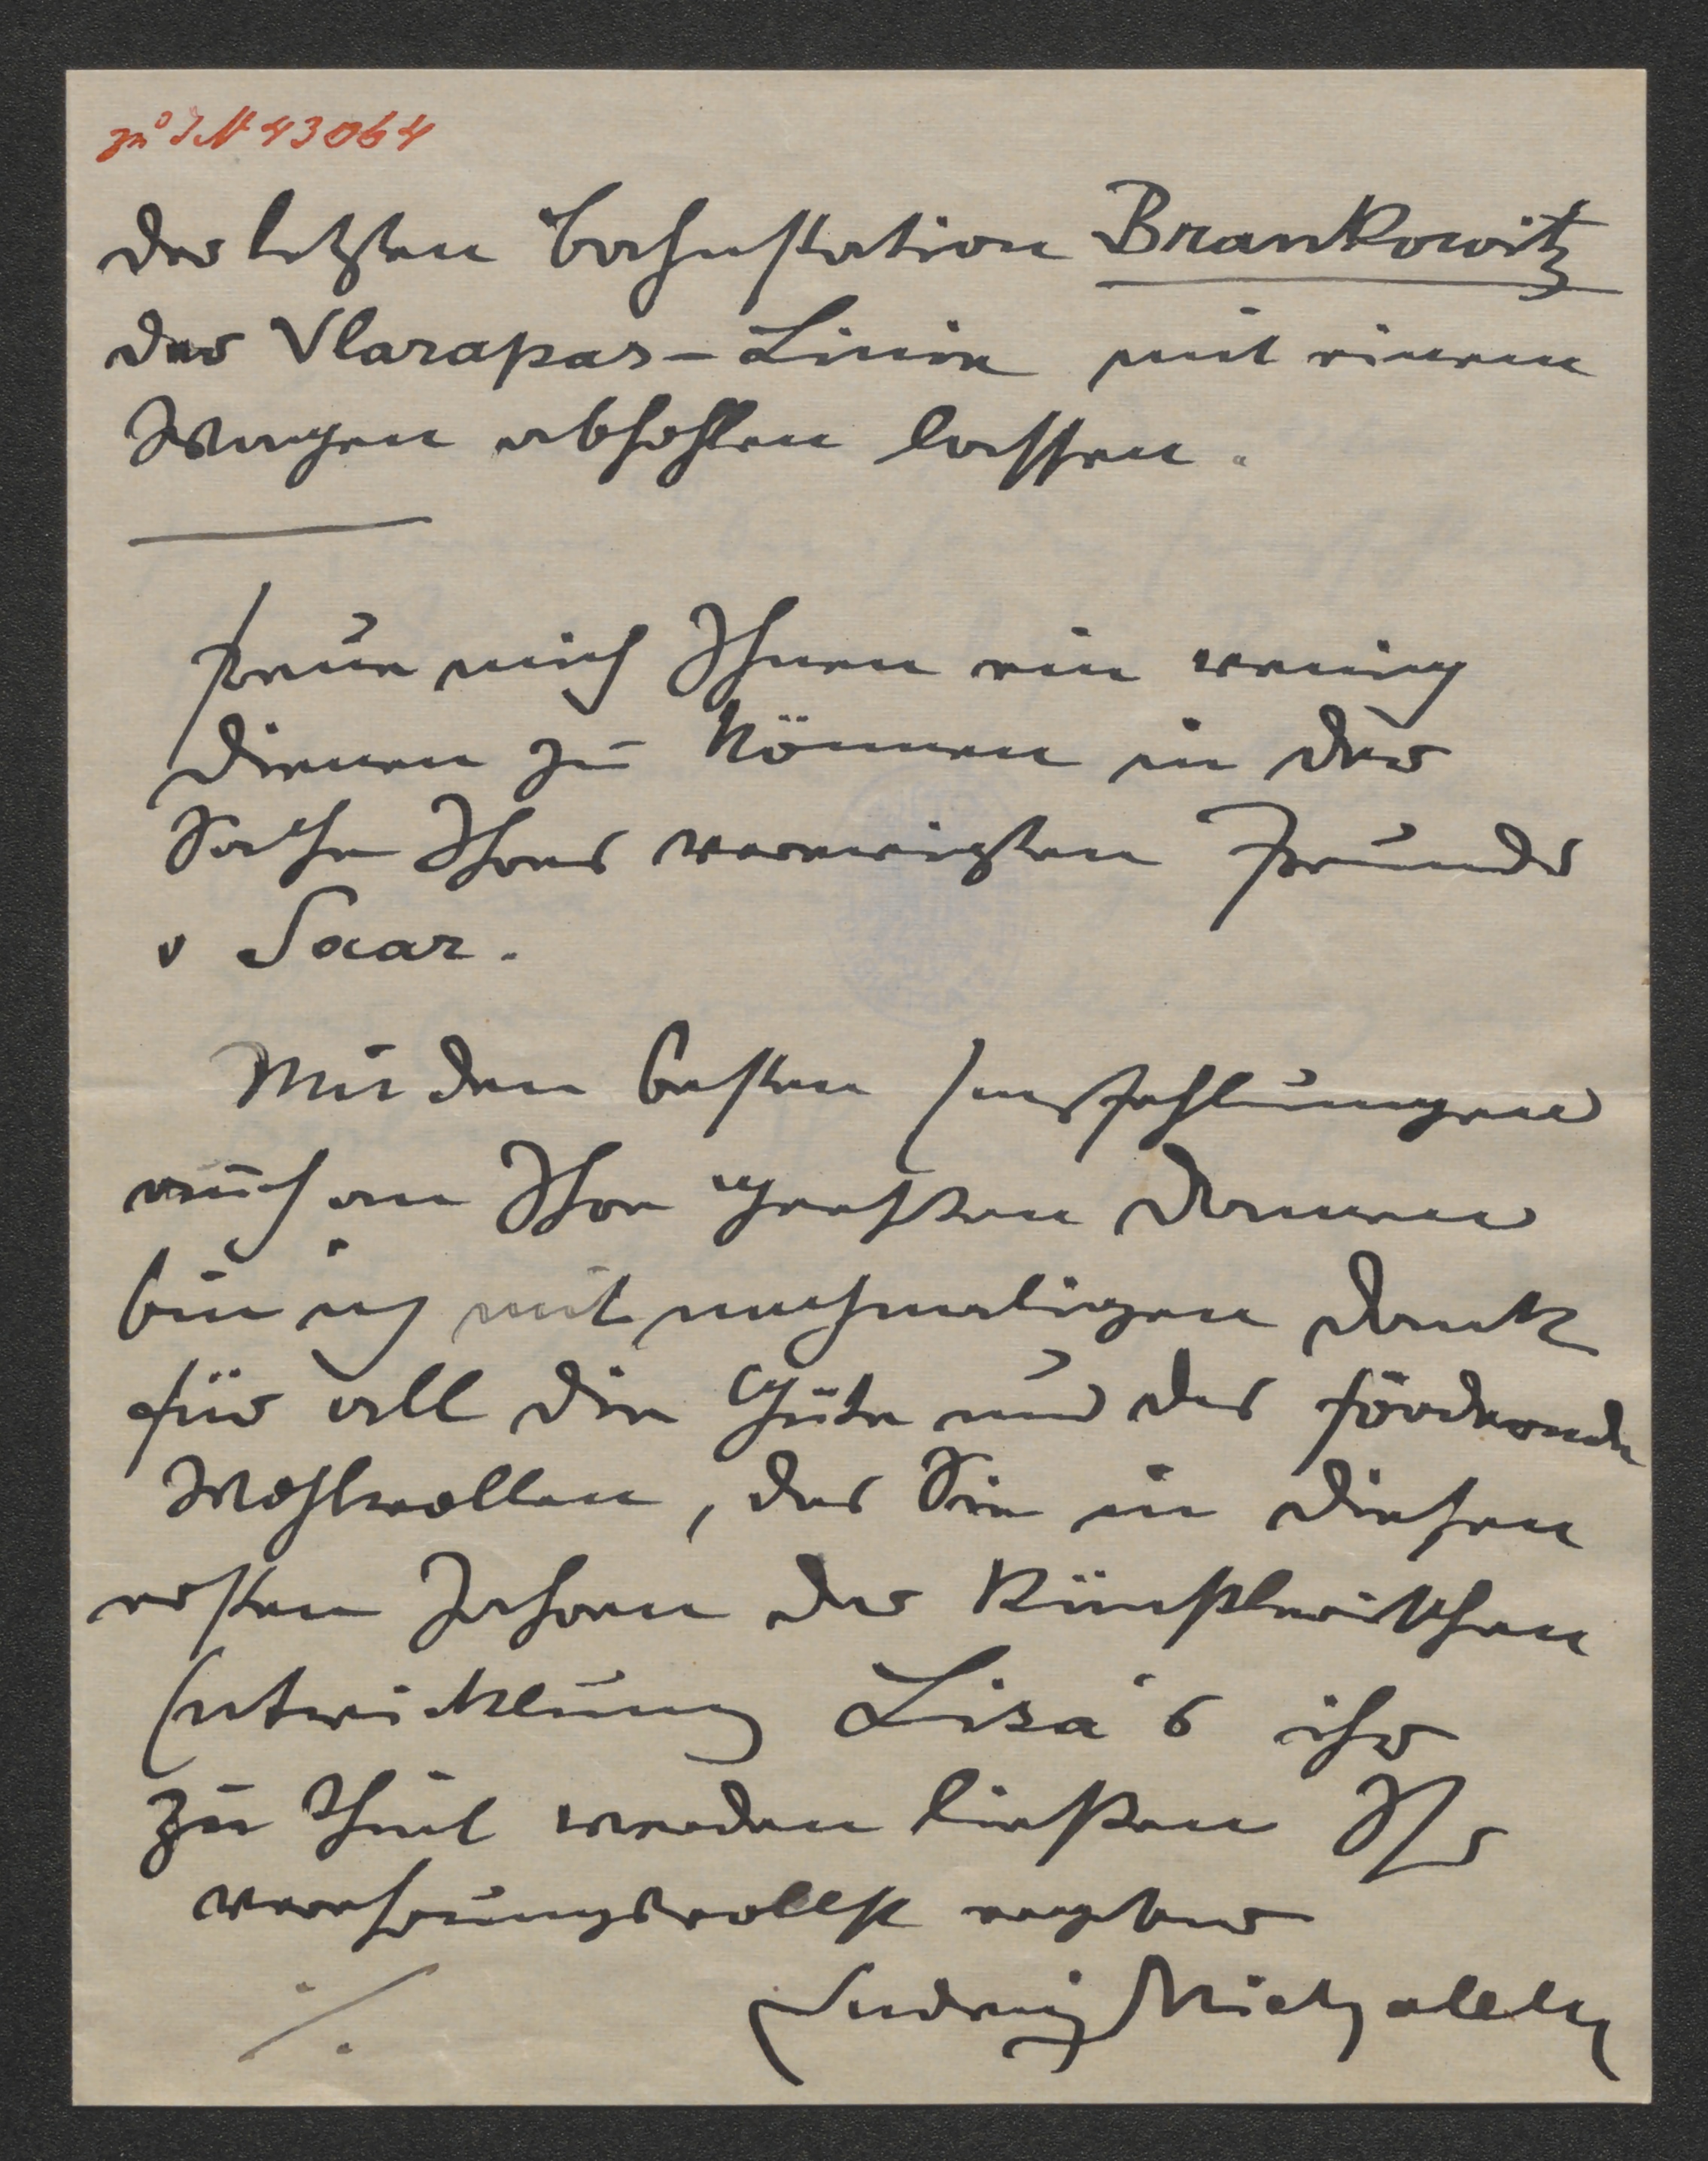 zu I N 43064
der letzten Bahnstation Brankowitz
der Vlarapas-Linie mit einem
Wagen abhohlen lassen.
Freue mich Ihnen ein wenig
dienen zu können in der
Sache Ihres verewigten Freundes
v Saar.
Mit den besten Empfehlungen
auch an Ihre geehrten Damen
bin ich mit nachmaligen Dank
für all die Güte und das fördernde
Wohlwollen, das Sie in diesen
ersten Jahren der künstlerischen
Entwicklung Lisa's ihr
zu Theil werden ließen Ihr
verehrungsvollst ergebener
Ludwig Michalek